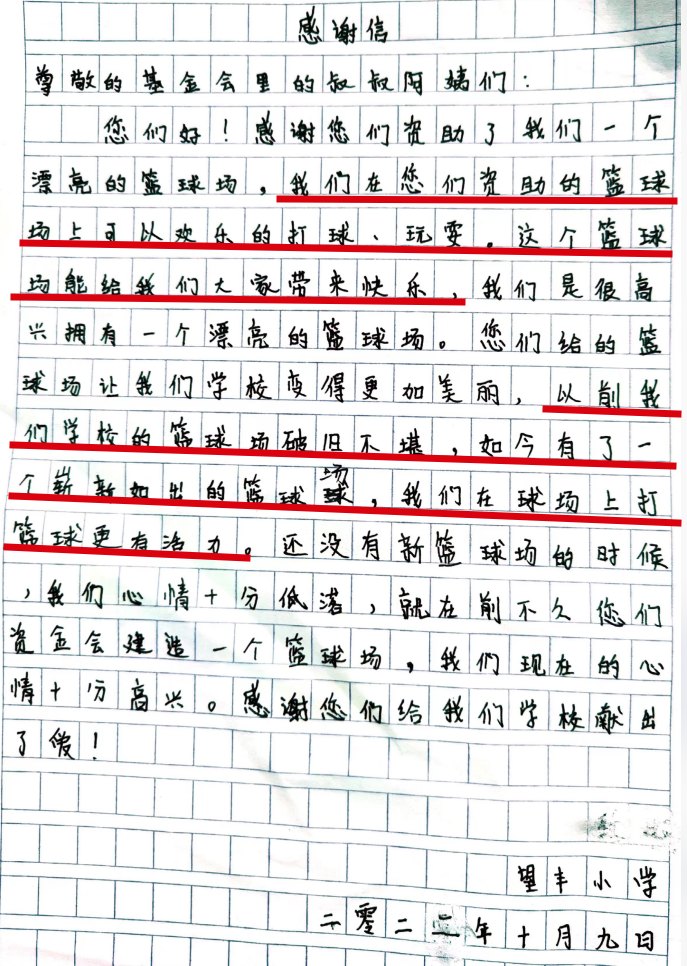 感谢信
尊敬的基金会里的叔叔阿姨们：
您们好！感谢您们资助了我们一个
漂亮的篮球场，我们在您们资助的篮球
场上可以欢乐的打球、玩耍。这个篮球
场能给我们大家带来快乐，我们是很高
兴拥有一个漂亮的篮球场。您们给的篮
球场让我们学校变得更加美丽，以前我
们学校的篮球场破旧不堪，如今有了一
个崭新如出的篮球场，我们在球场上打
篮球更有活力。还没有新篮球场的时候
，我们心情十分低落，就在前不久您们
资金会建造一个篮球场，我们现在的心
情十分高兴。感谢您们给我们学校献出
了爱！
望丰小学
二零二二年十月九日